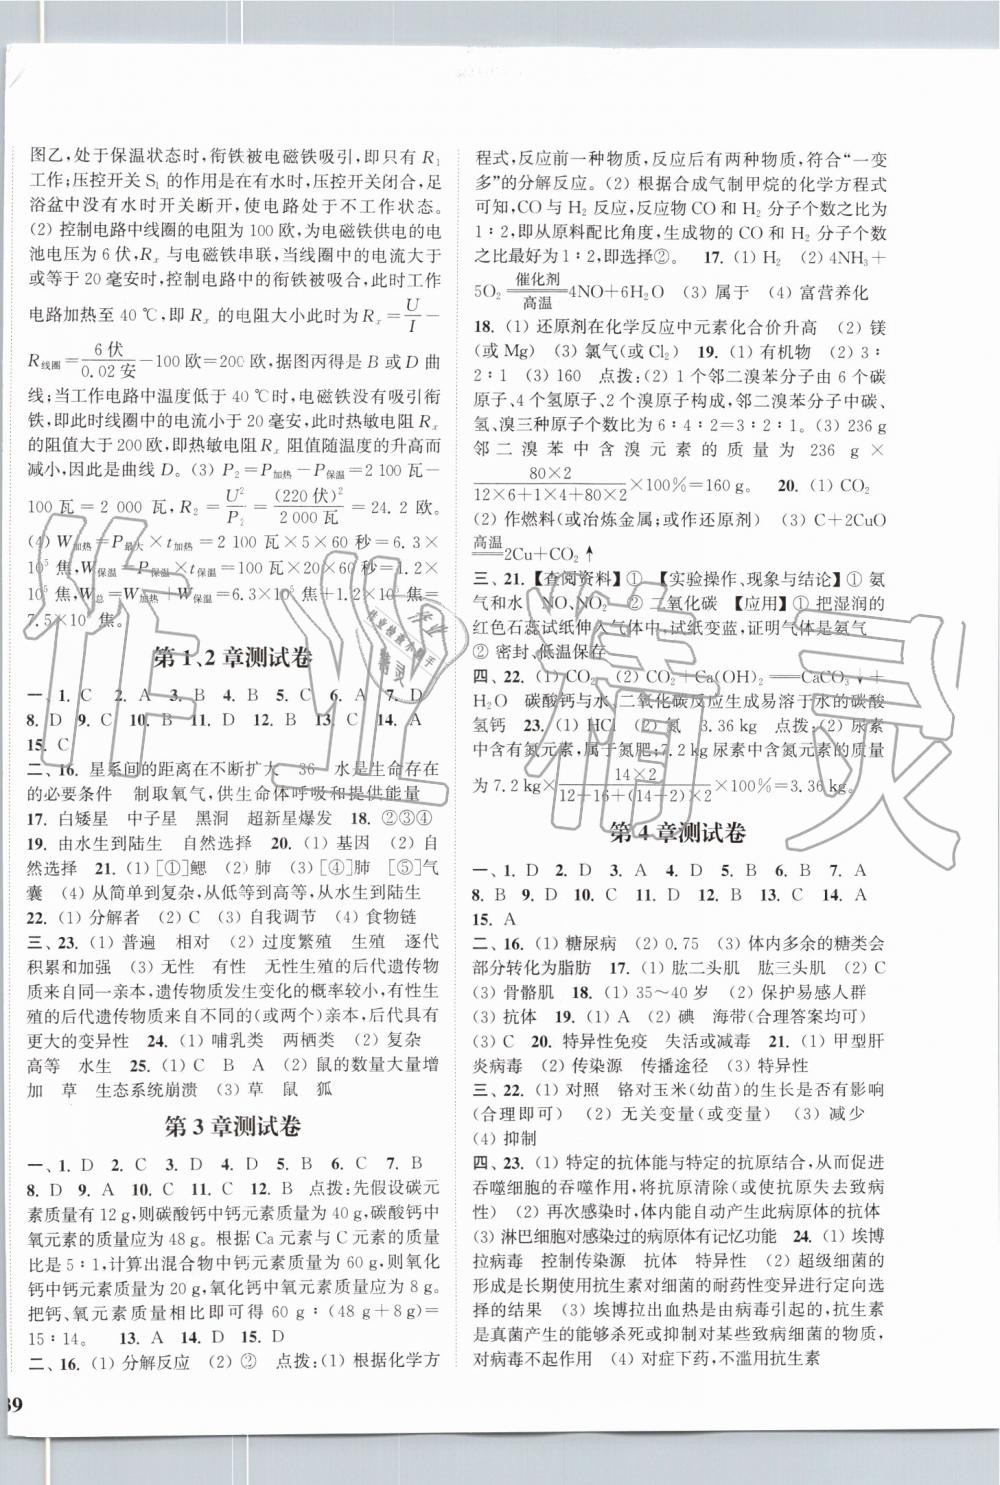 图乙,处于保温状态时,衔铁被电磁铁吸引,即只有 R₁
工作;压控开关 S₁ 的作用是在有水时,压控开关闭合,足
浴盆中没有水时开关断开,使电路处于不工作状态。
(2) 控制电路中线圈的电阻为 100 欧,为电磁铁供电的电
池电压为 6 伏,Rₓ 与电磁铁串联,当线圈中的电流大于
或等于 20 毫安时,控制电路中的衔铁被吸合,此时工作
电路加热至 40 ℃,即 Rₓ 的电阻大小此时为 Rₓ=U/I-
R线圈=6伏/0.02安-100 欧=200 欧,据图丙得是 B 或 D 曲
线;当工作电路中温度低于 40 ℃时,电磁铁没有吸引衔
铁,即此时线圈中的电流小于 20 毫安,此时热敏电阻 Rₓ
的阻值大于 200 欧,即热敏电阻 Rₓ 阻值随温度的升高而
减小,因此是曲线 D。(3) P₂=P加热-P保温=2 100 瓦-
100 瓦=2 000 瓦,R₂=U²/P₂=(220伏)²/2 000瓦=24.2 欧。
(4) W加热=P最大×t加热=2 100 瓦×5×60 秒=6.3×
10⁵ 焦,W保温=P保温×t保温=100 瓦×20×60 秒=1.2×
10⁵ 焦,W总=W加热+W保温=6.3×10⁵ 焦+1.2×10⁵ 焦=
7.5×10⁵ 焦。
第 1、2 章测试卷
一、1. C 2. A 3. B 4. B 5. C 6. A 7. D
8. D 9. C 10. B 11. D 12. B 13. C 14. A
15. C
二、16. 星系间的距离在不断扩大 36 水是生命存在
的必要条件 制取氧气,供生命体呼吸和提供能量
17. 白矮星 中子星 黑洞 超新星爆发 18. ②③④
19. 由水生到陆生 自然选择 20. (1) 基因 (2) 自
然选择 21. (1) [①]鳃 (2) 肺 (3) [④]肺 [⑤]气
囊 (4) 从简单到复杂,从低等到高等,从水生到陆生
22. (1) 分解者 (2) C (3) 自我调节 (4) 食物链
三、23. (1) 普遍 相对 (2) 过度繁殖 生殖 逐代
积累和加强 (3) 无性 有性 无性生殖的后代遗传物
质来自同一亲本,遗传物质发生变化的概率较小,有性生
殖的后代遗传物质来自不同的(或两个)亲本,后代具有
更大的变异性 24. (1) 哺乳类 两栖类 (2) 复杂
高等 水生 25. (1) C B A (2) 鼠的数量大量增
加 草 生态系统崩溃 (3) 草 鼠 狐
第 3 章测试卷
一、1. D 2. C 3. D 4. D 5. B 6. C 7. B
8. D 9. A 10. C 11. C 12. B 点拨:先假设碳元
素质量有 12 g,则碳酸钙中钙元素质量为 40 g,碳酸钙中
氧元素的质量应为 48 g。根据 Ca 元素与 C 元素的质量
比是 5∶1,计算出混合物中钙元素质量为 60 g,则氧化
钙中钙元素质量为 20 g,氧化钙中氧元素质量应为 8 g。
把钙、氧元素质量相比即可得 60 g∶(48 g+8 g)=
15∶14。 13. A 14. D 15. D
二、16. (1) 分解反应 (2) ② 点拨:(1) 根据化学方
39
程式,反应前一种物质,反应后有两种物质,符合“一变
多”的分解反应。(2) 根据合成气制甲烷的化学方程式
可知,CO 与 H₂ 反应,反应物 CO 和 H₂ 分子个数之比为
1∶2,即从原料配比角度,生成物的 CO 和 H₂ 分子个数
之比最好为1∶2,即选择②。 17. (1) H₂ (2) 4NH₃+
5O₂ ══催化剂/高温══ 4NO+6H₂O (3) 属于 (4) 富营养化
18. (1) 还原剂在化学反应中元素化合价升高 (2) 镁
(或 Mg) (3) 氯气(或 Cl₂) 19. (1) 有机物 (2) 3∶
2∶1 (3) 160 点拨:(2) 1 个邻二溴苯分子由 6 个碳
原子、4 个氢原子、2 个溴原子构成,邻二溴苯分子中碳、
氢、溴三种原子个数比为 6∶4∶2=3∶2∶1。(3) 236 g
邻二溴苯中含溴元素的质量为 236 g×
80×2/(12×6+1×4+80×2)×100%=160 g。 20. (1) CO₂
(2) 作燃料(或冶炼金属;或作还原剂) (3) C+2CuO
══高温══ 2Cu+CO₂↑
三、21.【查阅资料】① 【实验操作、现象与结论】① 氨
气和水 NO、NO₂ ② 二氧化碳 【应用】① 把湿润的
红色石蕊试纸伸入气体中,试纸变蓝,证明气体是氨气
② 密封、低温保存
四、22. (1) CO₂ (2) CO₂+Ca(OH)₂══CaCO₃↓+
H₂O 碳酸钙与水、二氧化碳反应生成易溶于水的碳酸
氢钙 23. (1) HCl (2) 氮 3.36 kg 点拨:(2) 尿素
中含有氮元素,属于氮肥;7.2 kg 尿素中含氮元素的质量
为 7.2 kg×14×2/(12+16+(14+2)×2)×100%=3.36 kg。
第 4 章测试卷
一、1. D 2. D 3. A 4. D 5. B 6. B 7. A
8. B 9. D 10. C 11. D 12. D 13. C 14. A
15. A
二、16. (1) 糖尿病 (2) 0.75 (3) 体内多余的糖类会
部分转化为脂肪 17. (1) 肱二头肌 肱三头肌 (2) C
(3) 骨骼肌 18. (1) 35～40 岁 (2) 保护易感人群
(3) 抗体 19. (1) A (2) 碘 海带(合理答案均可)
(3) C 20. 特异性免疫 失活或减毒 21. (1) 甲型肝
炎病毒 (2) 传染源 传播途径 (3) 特异性
三、22. (1) 对照 铬对玉米(幼苗)的生长是否有影响
(合理即可) (2) 无关变量(或变量) (3) 减少
(4) 抑制
四、23. (1) 特定的抗体能与特定的抗原结合,从而促进
吞噬细胞的吞噬作用,将抗原清除(或使抗原失去致病
性) (2) 再次感染时,体内能自动产生此病原体的抗体
(3) 淋巴细胞对感染过的病原体有记忆功能 24. (1) 埃博
拉病毒 控制传染源 抗体 特异性 (2) 超级细菌的
形成是长期使用抗生素对细菌的耐药性变异进行定向选
择的结果 (3) 埃博拉出血热是由病毒引起的,抗生素
是真菌产生的能够杀死或抑制某些致病细菌的物质,
对病毒不起作用 (4) 对症下药,不滥用抗生素
作业精灵